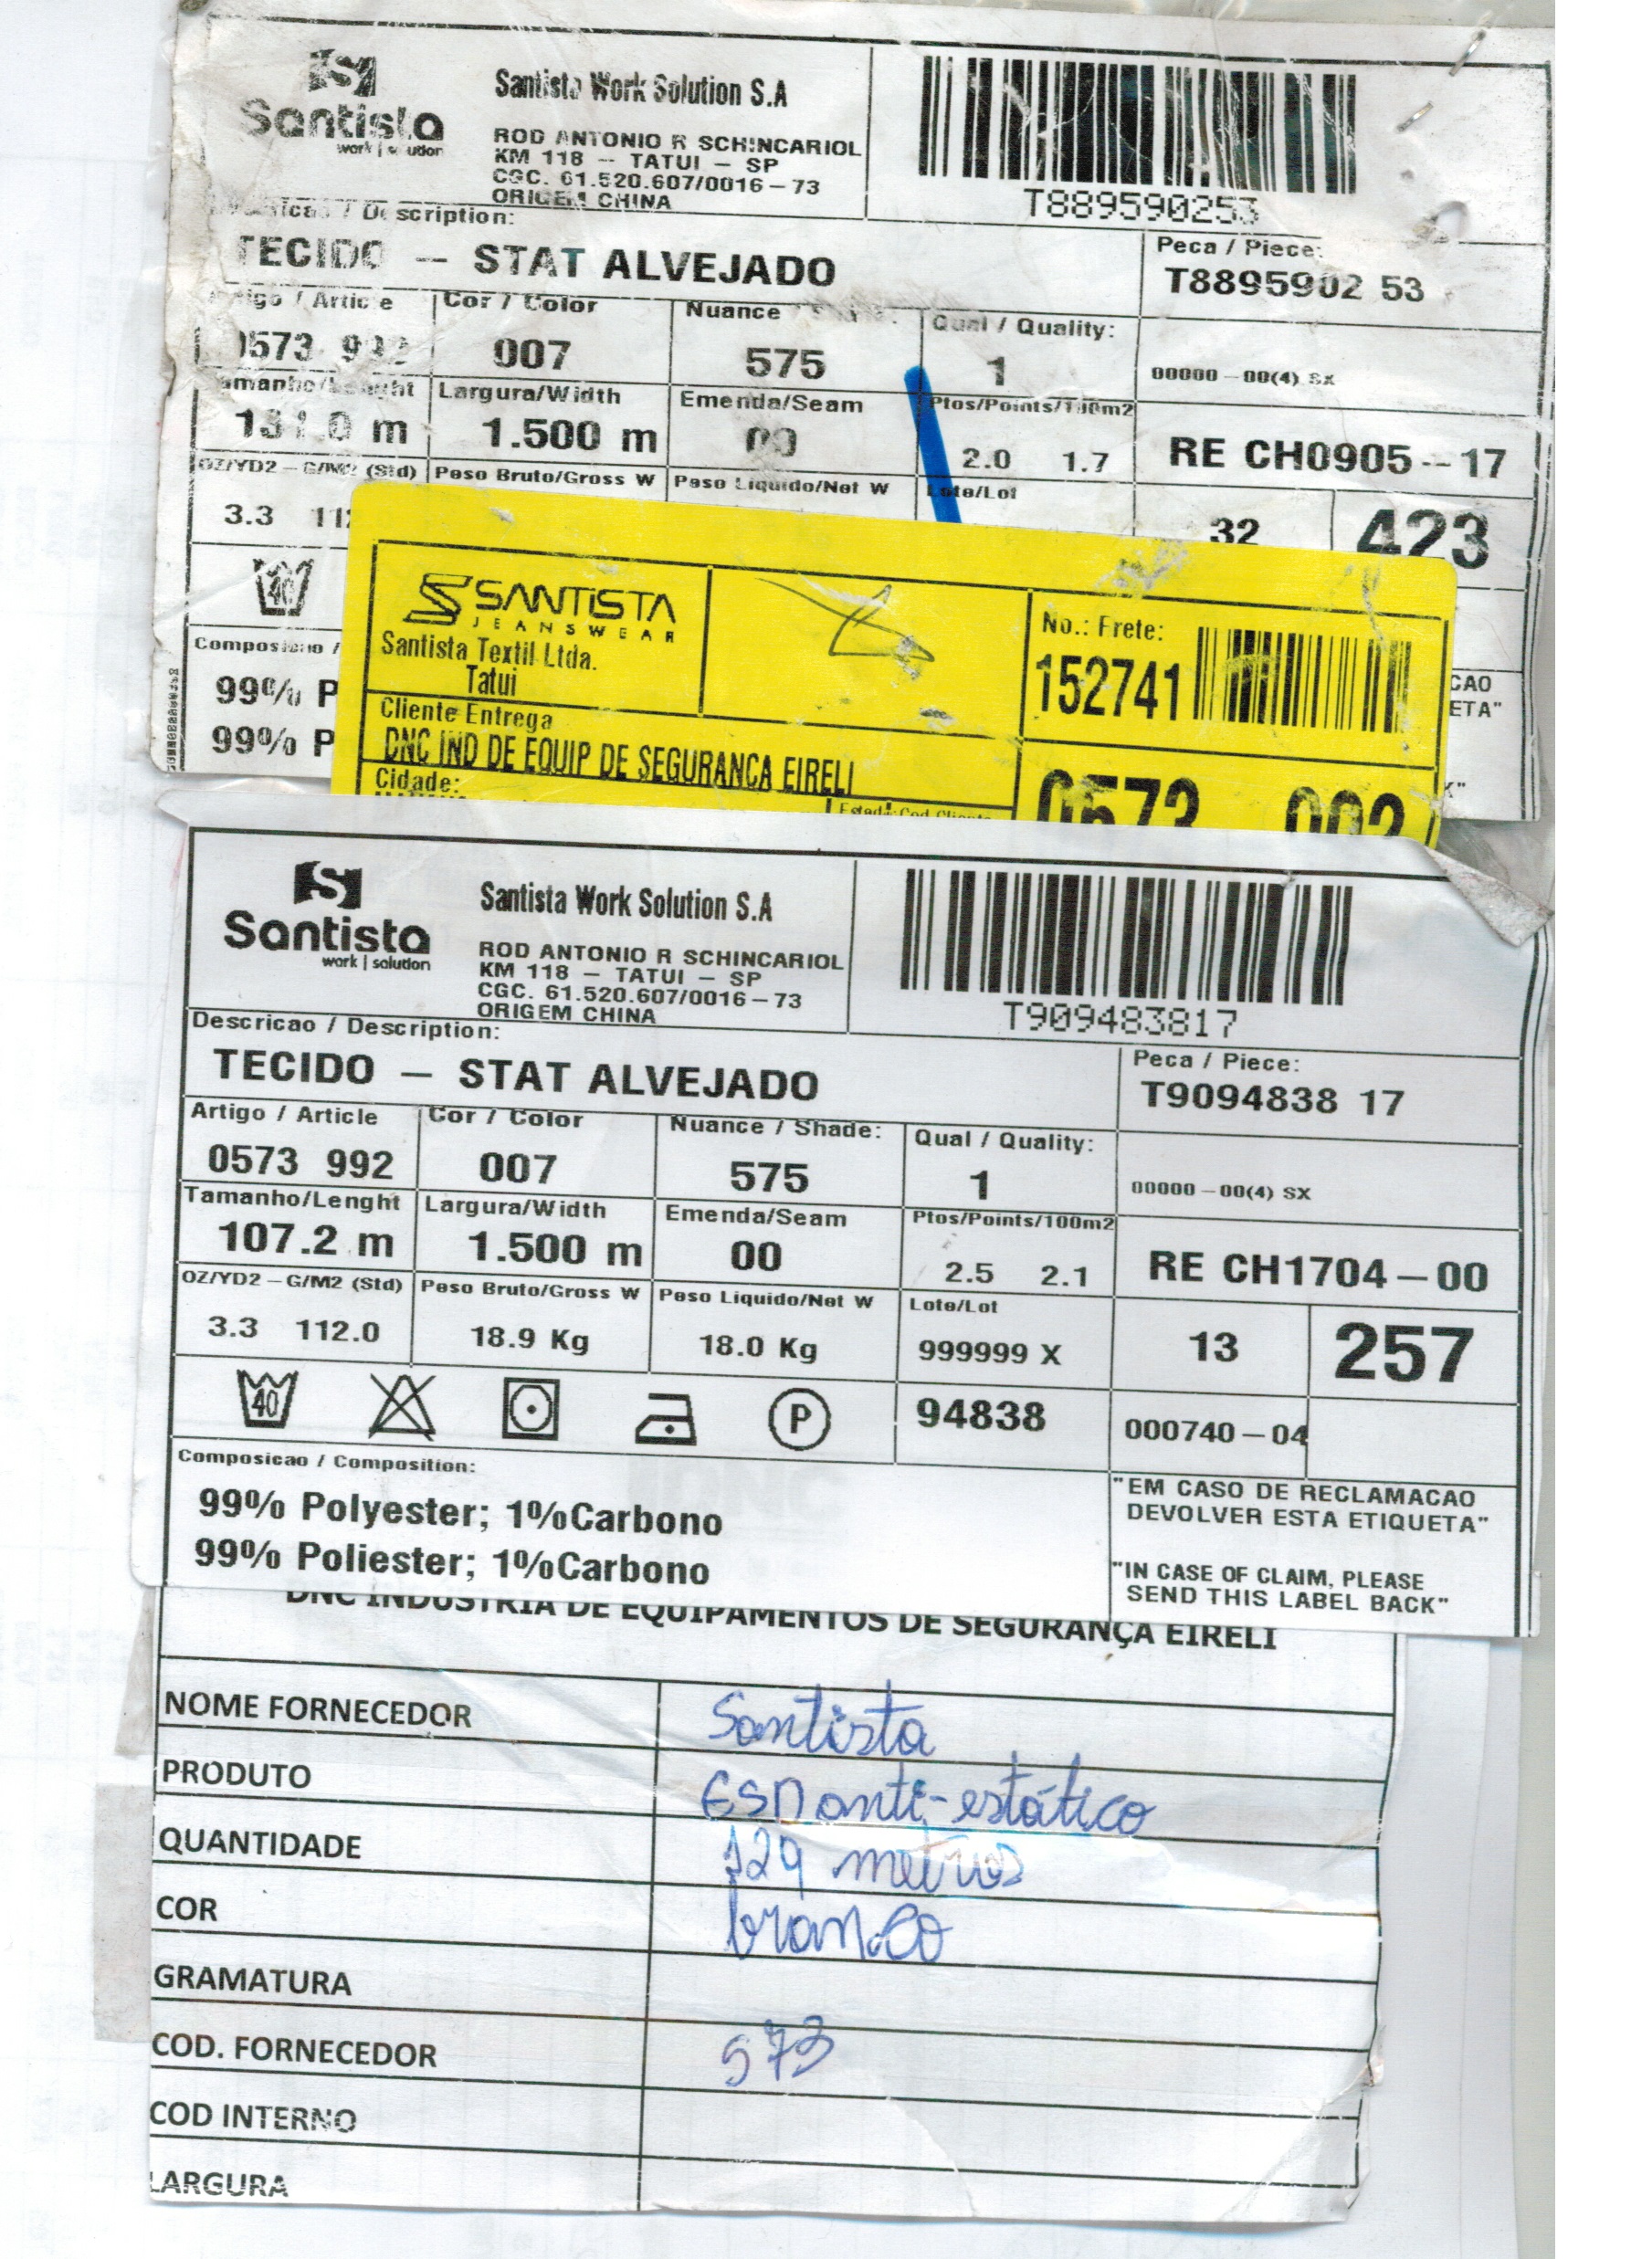 Santista
work | solution
Santista Work Solution S.A
ROD ANTONIO R SCHINCARIOL
KM 118 – TATUI – SP
CGC. 61.520.607/0016-73
ORIGEM CHINA
T889590253
/ Description:
TECIDO – STAT ALVEJADO
Peca / Piece:
T8895902 53
Artigo / Article
Cor / Color
Nuance / Shade:
Qual / Quality:
0573 992
007
575
1
00000-00(4) SX
Tamanho/Lenght
Largura/Width
Emenda/Seam
Ptos/Points/100m2
m
1.500 m
00
2.0 1.7
RE CH0905--17
OZ/YD2-G/M2 (Std)
Peso Bruto/Gross W
Peso Liquido/Net W
Lote/Lot
3.3
32
423
40
Composicao /
99% P
99% P
CAO
ETA"
SANTISTA
JEANSWEAR
Santista Textil Ltda.
Tatui
No.: Frete:
152741
Cliente Entrega
DNC IND DE EQUIP DE SEGURANCA EIRELI
Cidade:
Santista
work | solution
Santista Work Solution S.A
ROD ANTONIO R SCHINCARIOL
KM 118 – TATUI – SP
CGC. 61.520.607/0016-73
ORIGEM CHINA
T909483817
Descricao / Description:
TECIDO – STAT ALVEJADO
Peca / Piece:
T9094838 17
Artigo / Article
Cor / Color
Nuance / Shade:
Qual / Quality:
0573 992
007
575
1
00000-00(4) SX
Tamanho/Lenght
Largura/Width
Emenda/Seam
Ptos/Points/100m2
107.2 m
1.500 m
00
2.5 2.1
RE CH1704-00
OZ/YD2-G/M2 (Std)
Peso Bruto/Gross W
Peso Liquido/Net W
Lote/Lot
3.3 112.0
18.9 Kg
18.0 Kg
999999 X
13
257
40
P
94838
000740-04
Composicao / Composition:
99% Polyester; 1%Carbono
99% Poliester; 1%Carbono
"EM CASO DE RECLAMACAO
DEVOLVER ESTA ETIQUETA"
"IN CASE OF CLAIM, PLEASE
SEND THIS LABEL BACK"
DNC INDUSTRIA DE EQUIPAMENTOS DE SEGURANÇA EIRELI
NOME FORNECEDOR Santista
PRODUTO ESD anti-estático
QUANTIDADE 129 metros
COR branco
GRAMATURA
COD. FORNECEDOR 573
COD INTERNO
LARGURA